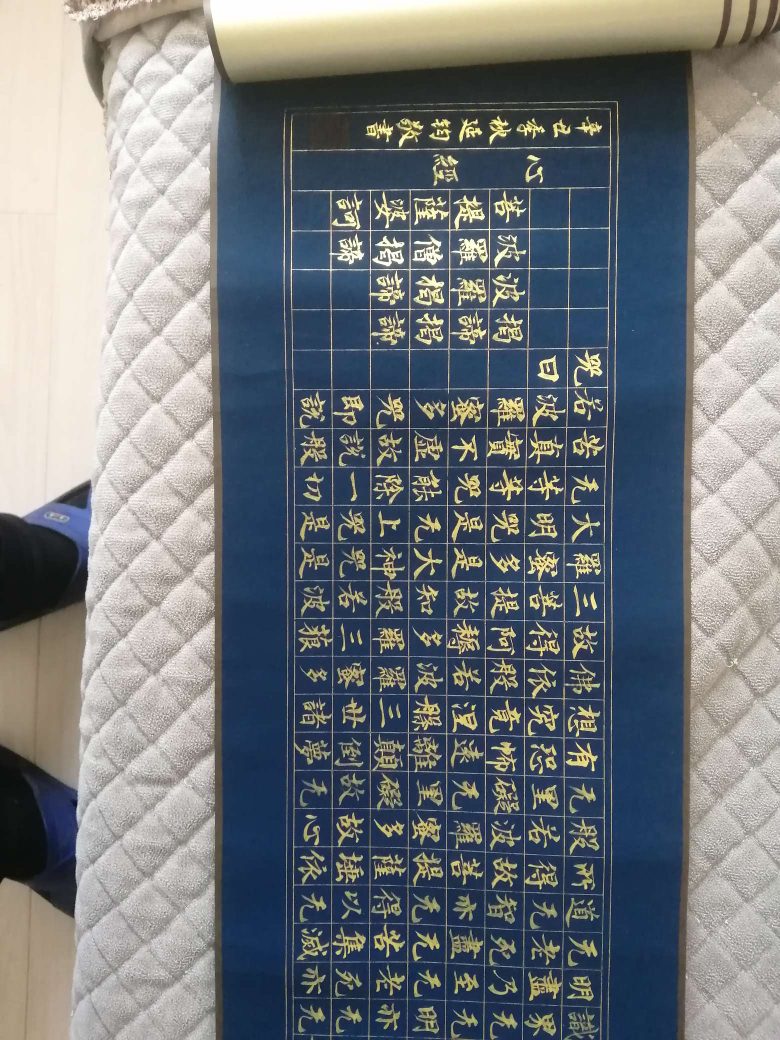 識界无无明亦无无
明盡乃至无老死亦
无老死盡无苦集滅
道无智亦无得以无
所得故菩提薩埵依
般若波羅蜜多故心
无罣礙无罣礙故无
有恐怖遠離顛倒夢
想究竟涅槃三世諸
佛依般若波羅蜜多
故得阿耨多羅三藐
三菩提故知般若波
羅蜜多是大神咒是
大明咒是无上咒是
无等等咒能除一切
苦真實不虛故說般
若波羅蜜多咒即說
咒曰
揭諦揭諦
波羅揭諦
波羅僧揭諦
菩提薩婆訶
心經
辛丑季秋延鈞敬書